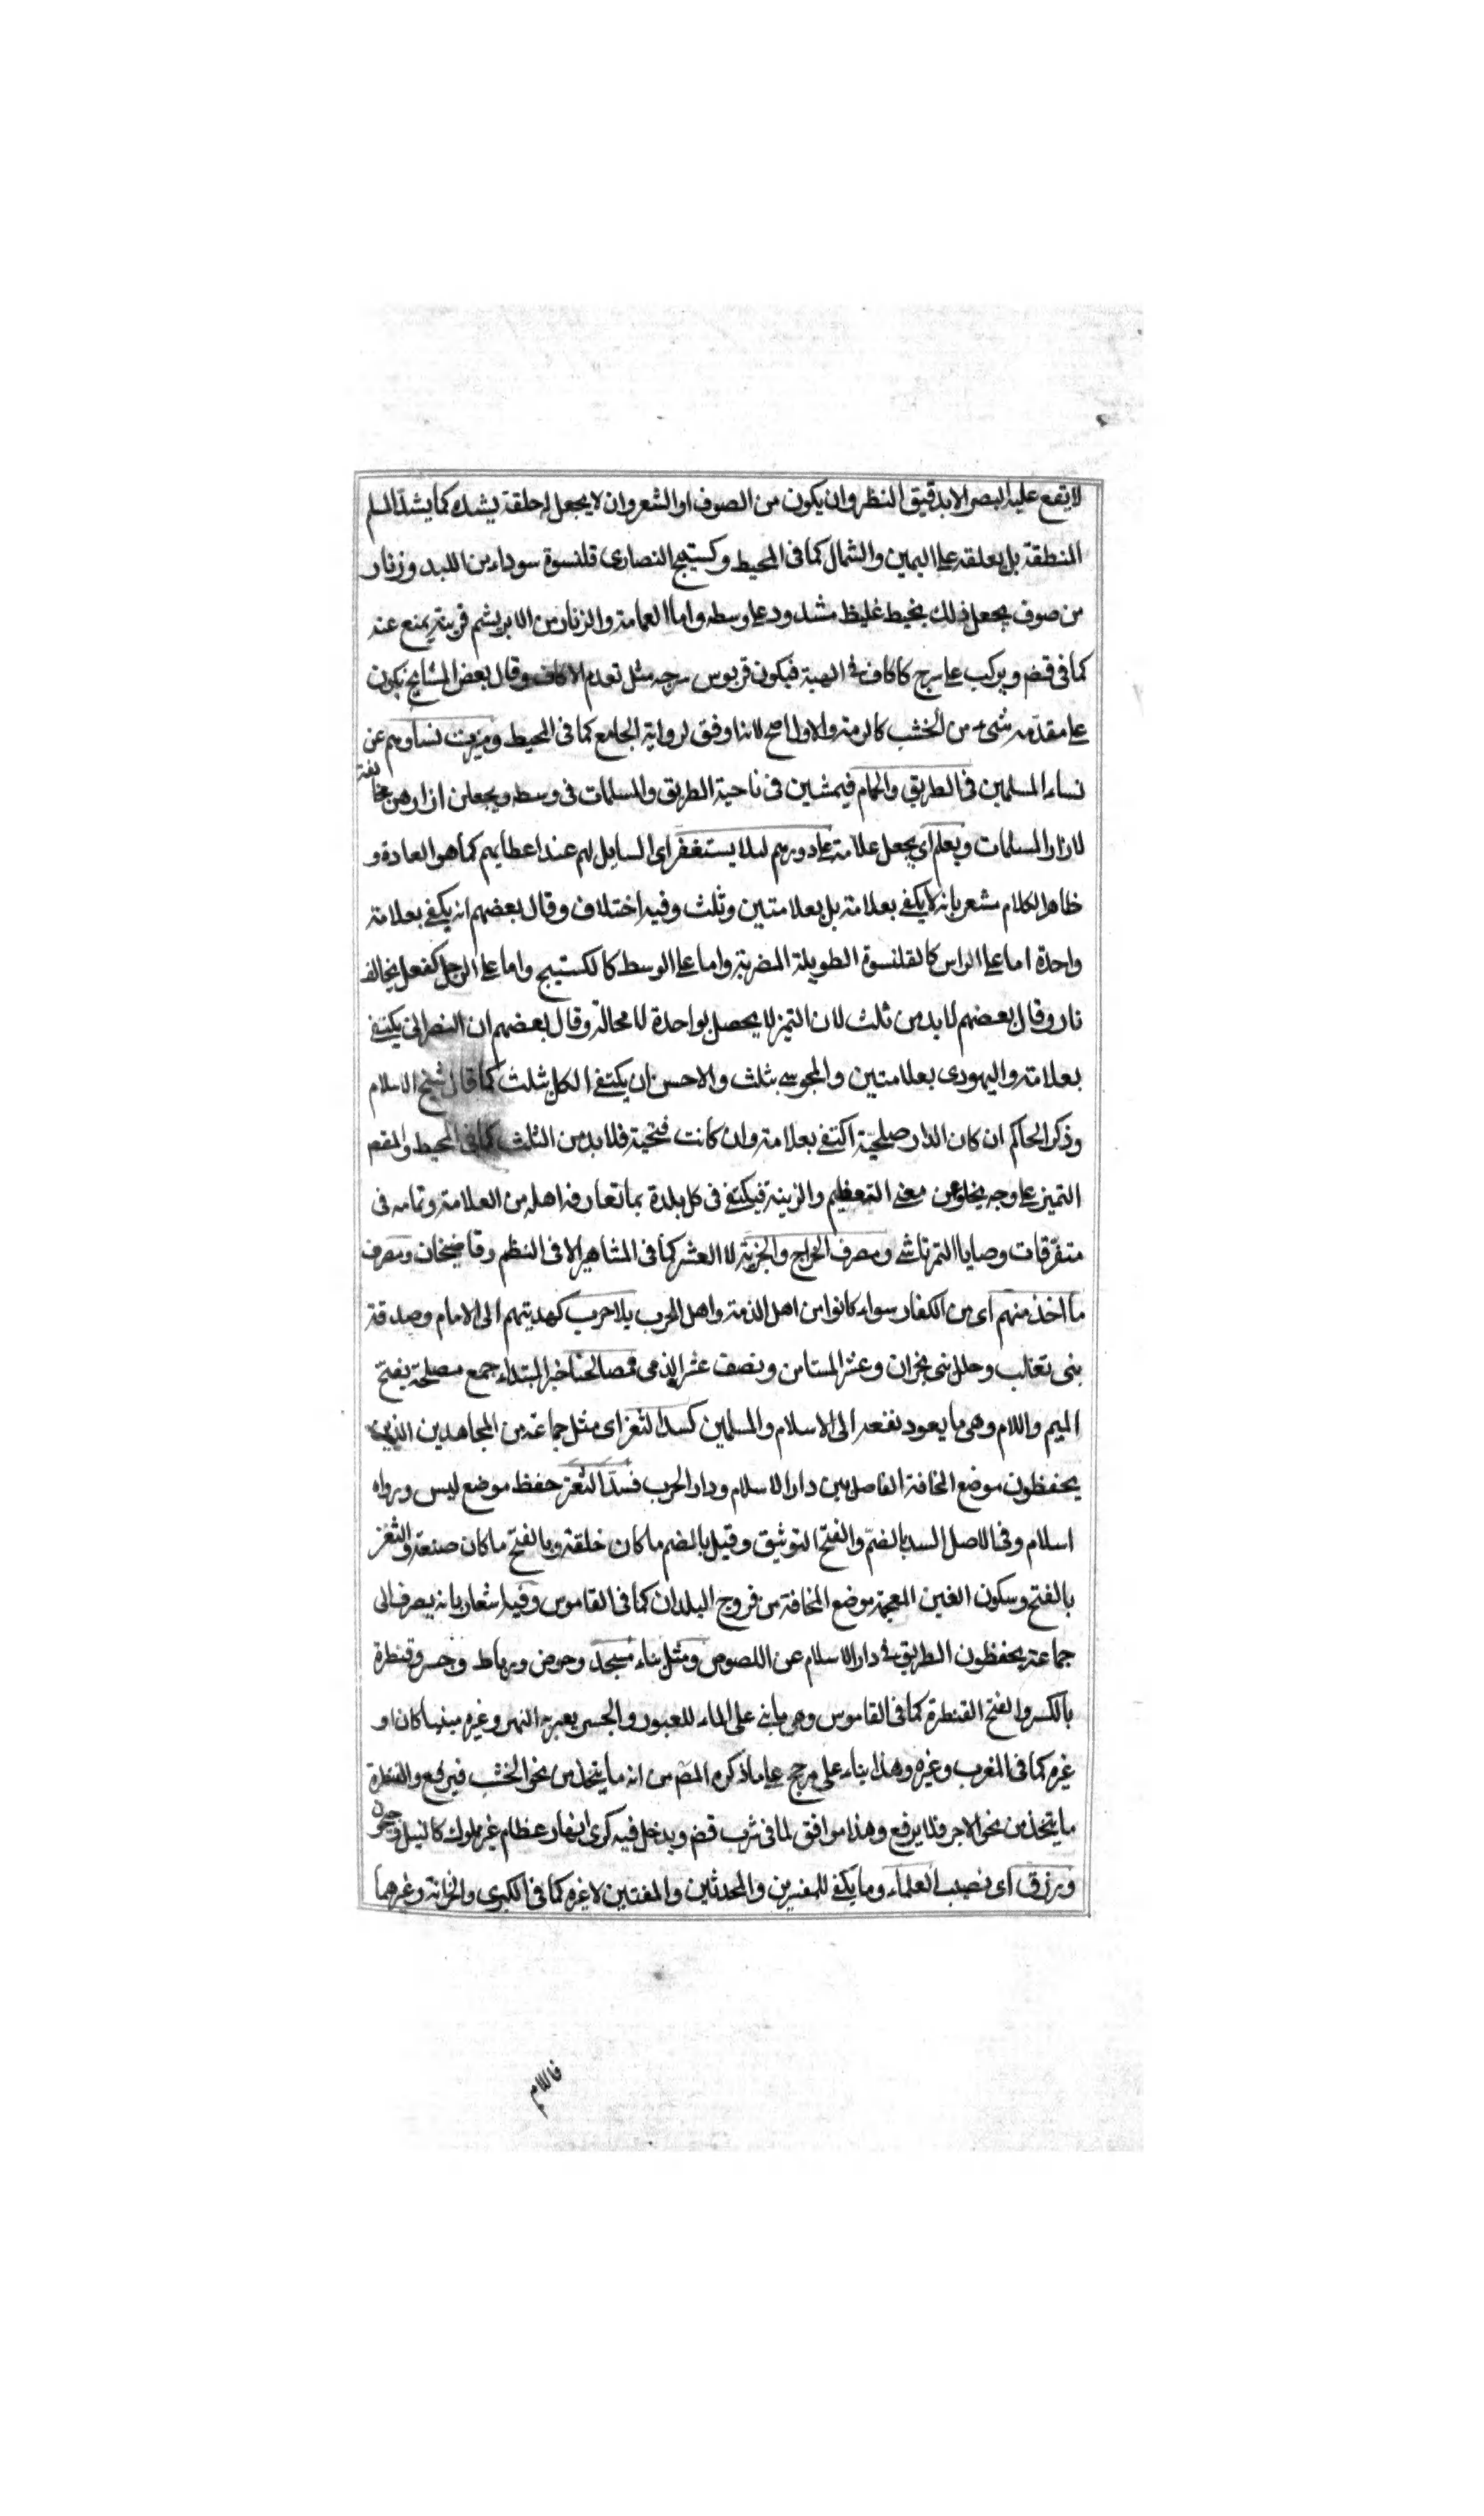 لا يقع عليه البصر الا بدقيق النظر وان يكون من الصوف او الشعر وان لا يجعل له حلقة يشده كما يشد المسلم
المنطقة بل يعلقه على اليمين والشمال كما فى المحيط وكستيج النصارى قلنسوة سوداء من اللبد وزنار
من صوف يجعل ذلك بخيط غليظ مشدود على وسطه واما العمامة والزنار من الابريشم فزينة يمنع عنه
كما فى قضم ويركب على سرج كاكاف فى الهيئة فيكون قربوس سرجه مثل تقدم الاكاف وقال بعض المشايخ يكون
على مقدمه شىء من الخشب كالرمنة والاول اصح لانه اوفق لرواية الجامع كما فى المحيط وميزت نساؤهم عن
نساء المسلمين فى الطريق والحمام فيمشين فى ناحية الطريق والمسلمات فى وسطه ويجعلن ازارهن مخالفة
لازار المسلمات ويعلم اى يجعل علامة على دورهم لئلا يستغفر اى السايل لهم عند اعطايهم كما هو العادة و
ظاهر الكلام مشعر بانه لا يكفى بعلامة بل بعلامتين وثلث وفيه اختلاف وقال بعضهم انه يكفى بعلامة
واحدة اما على الراس كالقلنسوة الطويلة المضربة واما على الوسط كالكستيج واما على الرجل كفعل يخالف
نار وقال بعضهم لا بد من ثلث لان التميز لا يحصل بواحدة لا محالة وقال بعضهم ان النصرانى يكتفى
بعلامة واليهودى بعلامتين والمجوسى بثلث والاحسن ان يكتفى الكل بثلث كما قال شيخ الاسلام
وذكر الحاكم ان كان الدار صلحيّة اكتفى بعلامة وان كانت فتحية فلا بد من الثلث كما فى المحيط والمقصر
التميز على وجه يخلو عن معنى التعظيم والزينة فيكتفى فى كل بلدة بما تعارفه اهله من العلامة وتمامه فى
متفرقات وصايا التمرتاشى ومصرف الخراج والجزية لا العشر كما فى المشاهير الا فى النظم وقاضيخان ومصرف
ما اخذ منهم اى من الكفار سواء كانوا من اهل الذمة واهل الحرب بلا حرب كهديتهم الى الامام وصدقة
بنى تغلب وحلل بنى نجران وعشر المستامن ونصف عشر الذمى مصالحنا خبر المبتداء جمع مصلحة بفتح
الميم واللام وهى ما يعود نفعه الى الاسلام والمسلمين كسد الثغر اى مثل جماعة من المجاهدين الذين
يحفظون موضع المخافة الفاصل بين دار الاسلام ودار الحرب فسدّ الثغر حفظ موضع ليس وراءه
اسلام وفى الاصل السد بالضمّ والفتح التوثيق وقيل بالضم ما كان خلقة وبالفتح ما كان صنعة والثغر
بالفتح وسكون الغين المعجمة موضع المخافة من فروج البلدان كما فى القاموس وفيه اشعار بانه يصرف الى
جماعة يحفظون الطريق فى دار الاسلام عن اللصوص ومثل بناء مسجد وحوض ورباط وجسر وقنطرة
بالكسر والفتح القنطرة كما فى القاموس وهى ما بنى على الماء للعبور والجسر يعبر به النهر وغيره مبنيا كان او
غيره كما فى المغرب وغيره وهذا بناء على مرجح على ما ذكره المص من انه ما يتخذ من نحو الخشب فيرفع والقنطرة
ما يتخذ من نحو الاجر فلا يرفع وهذا موافق لما فى شرب قضم ويدخل فيه كرى انهار عظام غير مملوك كالنيل وجيحون
ورزق اى نصيب العلماء وما يكفى للمفسرين والمحدثين والمفتين لا غيره كما فى الكبرى والخزانة وغيرهما